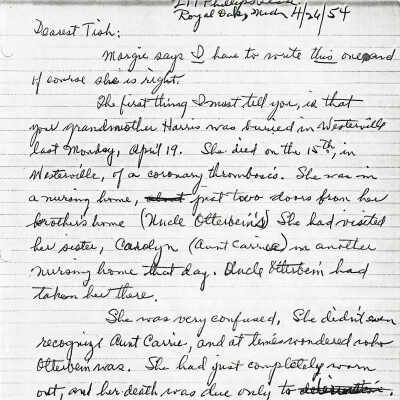 Phillips
Royal Oak, Mich 4/26/54
Dearest Tish:
Margie says I have to write this one and
of course she is right.
The first thing I must tell you, is that
your grandmother Harris was buried in Westerville
last Monday, April 19. She died on the 15th, in
Westerville, of a coronary thrombosis. She was in
a nursing home, just two doors from her
brother's home (Uncle Otterbein's) She had visited
her sister, Carolyn (Aunt Carrie) in another
nursing home that day. Uncle Otterbein had
taken her there.
She was very confused. She didn't even
recognize Aunt Carrie, and at times wondered who
Otterbein was. She had just completely worn
out, and her death was due only to